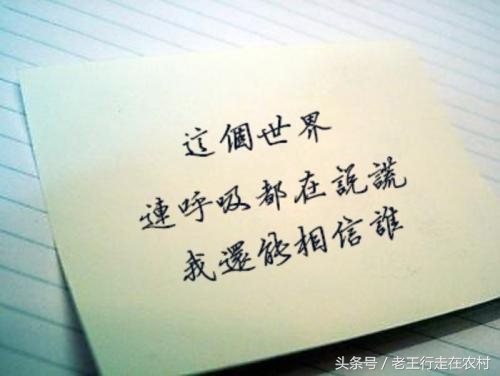 這個世界
連呼吸都在説謊
我還能相信誰
头条号／老王行走在农村